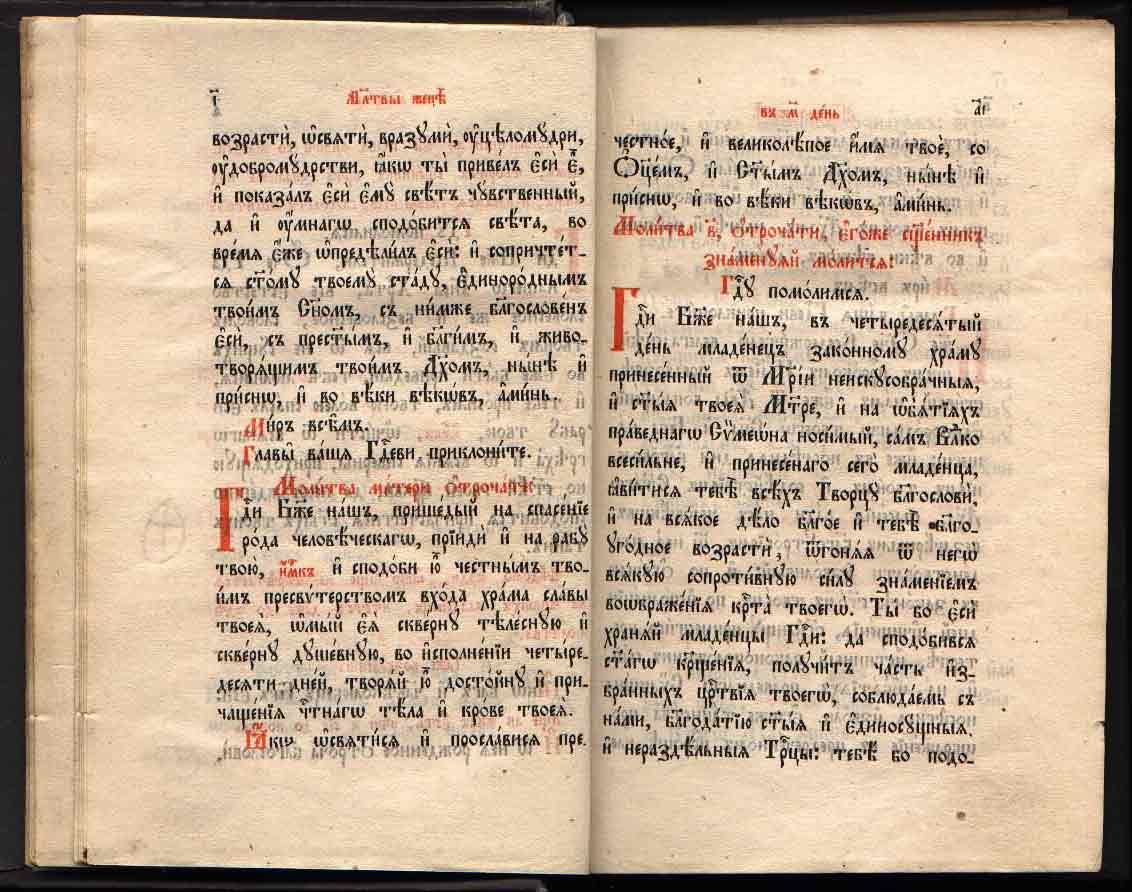 і҃
Мл҃твы женѣ
возрастѝ, ѡ҆свѧтѝ, вразꙋмѝ, ᲂу҆цѣломꙋдри,
ᲂу҆добромꙋдрстви, ꙗ҆́кѡ ты̀ приве́лъ є҆сѝ є҆̀,
и҆ показа́лъ є҆сѝ є҆мꙋ̀ свѣ́тъ чꙋвственный,
да и҆ ᲂу҆́мнагѡ сподо́битсѧ свѣ́та, во
вре́мѧ є҆́же ѡ҆предѣли́лъ є҆сѝ: и҆ сопричте́т-
сѧ ст҃о́мꙋ твоемꙋ̀ ста́дꙋ, є҆диноро́днымъ
твои́мъ сн҃омъ, съ ни́мже блгⷭ҇ослове́нъ
є҆сѝ, съ прест҃ы́мъ, и҆ бл҃ги́мъ, и҆ живо-
творѧ́щимъ твои́мъ дх҃омъ, ны́нѣ и҆
при́снѡ, и҆ во вѣ́ки вѣкѡ́въ, а҆ми́нь.
Ми́ръ всѣ́мъ.
Главы̀ ва́шѧ гдⷭ҇еви приклони́те.
Моли́тва ма́тери ѻ҆троча́тѣ
Гдⷭ҇и бж҃е на́шъ, прише́дый на спасе́нїе
ро́да человѣ́ческагѡ, прїидѝ и҆ на рабꙋ̀
твою̀, и҆́мⷬ҇къ и҆ сподо́би ю҆̀ че́стнымъ тво-
и́мъ пресвѵ́терствомъ вхо́да хра́ма сла́вы
твоеѧ̀, ѡ҆мы́й є҆ѧ̀ скве́рнꙋ тѣле́снꙋю и҆
скве́рнꙋ дꙋше́внꙋю, во и҆сполне́нїи четы́ре-
десѧти дне́й, творѧ́й ю҆̀ досто́йнꙋ и҆ при-
чаще́нїѧ чтⷭ҇на́гѡ тѣ́ла и҆ кро́ве твоеѧ̀.
Ꙗ҆́кѡ ѡ҆свѧти́сѧ и҆ просла́висѧ пре-
въ м҃ де́нь
а҃і
честно́е, и҆ великолѣ́пое и҆́мѧ твоѐ, со
ѻ҆ц҃е́мъ, и҆ ст҃ы́мъ дх҃омъ, ны́нѣ и҆
при́снѡ, и҆ во вѣ́ки вѣкѡ́въ, а҆ми́нь.
Моли́тва в҃, ѻ҆троча́ти, є҆го́же сщ҃е́нникъ
зна́менꙋѧй мо́литсѧ:
Гдⷭ҇ꙋ помо́лимсѧ.
Гдⷭ҇и бж҃е на́шъ, въ четыредесѧ́тый
де́нь младе́нецъ зако́нномꙋ хра́мꙋ
принесе́нный ѿ мр҃і́и неискꙋсобра́чныѧ,
и҆ ст҃ы́ѧ твоеѧ̀ мт҃ре, и҆ на ѡ҆бѧ́тїѧхъ
пра́веднагѡ сѷмеѡ́на носи́мый, са́мъ влⷣко
всеси́льне, и҆ принесе́наго сего̀ младе́нца,
ꙗ҆ви́тисѧ тебѣ̀ всѣ́хъ творцꙋ̀ блгⷭ҇осло́ви,
и҆ на всѧ́кое дѣ́ло бл҃го́е и҆ тебѣ̀ бл҃го-
ᲂуго́дное возрастѝ, ѿгонѧ́ѧ ѿ негѡ̀
всѧ́кꙋю сопроти́внꙋю си́лꙋ зна́менїемъ
воѡбраже́нїѧ крⷭ҇та̀ твоегѡ̀. Ты́ бо є҆сѝ
хранѧ́й младе́нцы гдⷭ҇и: да сподо́бивсѧ
ст҃а́гѡ крⷭ҇ще́нїѧ, полꙋчи́тъ ча́сть и҆з-
бра́нныхъ црⷭ҇твїѧ твоегѡ̀, соблюда́емь съ
на́ми, блгⷣтїю ст҃ы́ѧ и҆ є҆диносꙋ́щныѧ.
и҆ нераздѣ́льныѧ трⷪ҇цы: тебѣ́ бо подо-